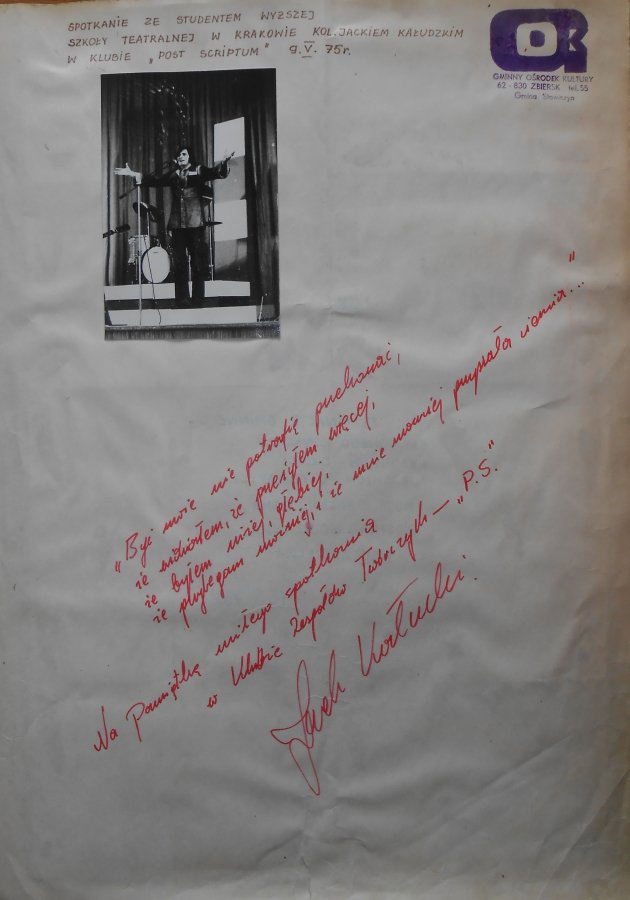 SPOTKANIE ZE STUDENTEM WYŻSZEJ
SZKOŁY TEATRALNEJ W KRAKOWIE KOL. JACKIEM KAŁUDZKIM
W KLUBIE „POST SCRIPTUM" 9.V. 75r.
GOK
GMINNY OŚRODEK KULTURY
62-830 ZBIERSK tel. 55
Gmina Stawiszyn
„Być może nie potrafię przekonać,
że widziałem, że przeżyłem więcej,
że byłem niżej, głębiej,
że przylegam mocniej, i że mnie mocniej ziemia..."
Na Pamiątkę miłego spotkania
w Klubie Zespołów Twórczych — „P.S."
Jacek